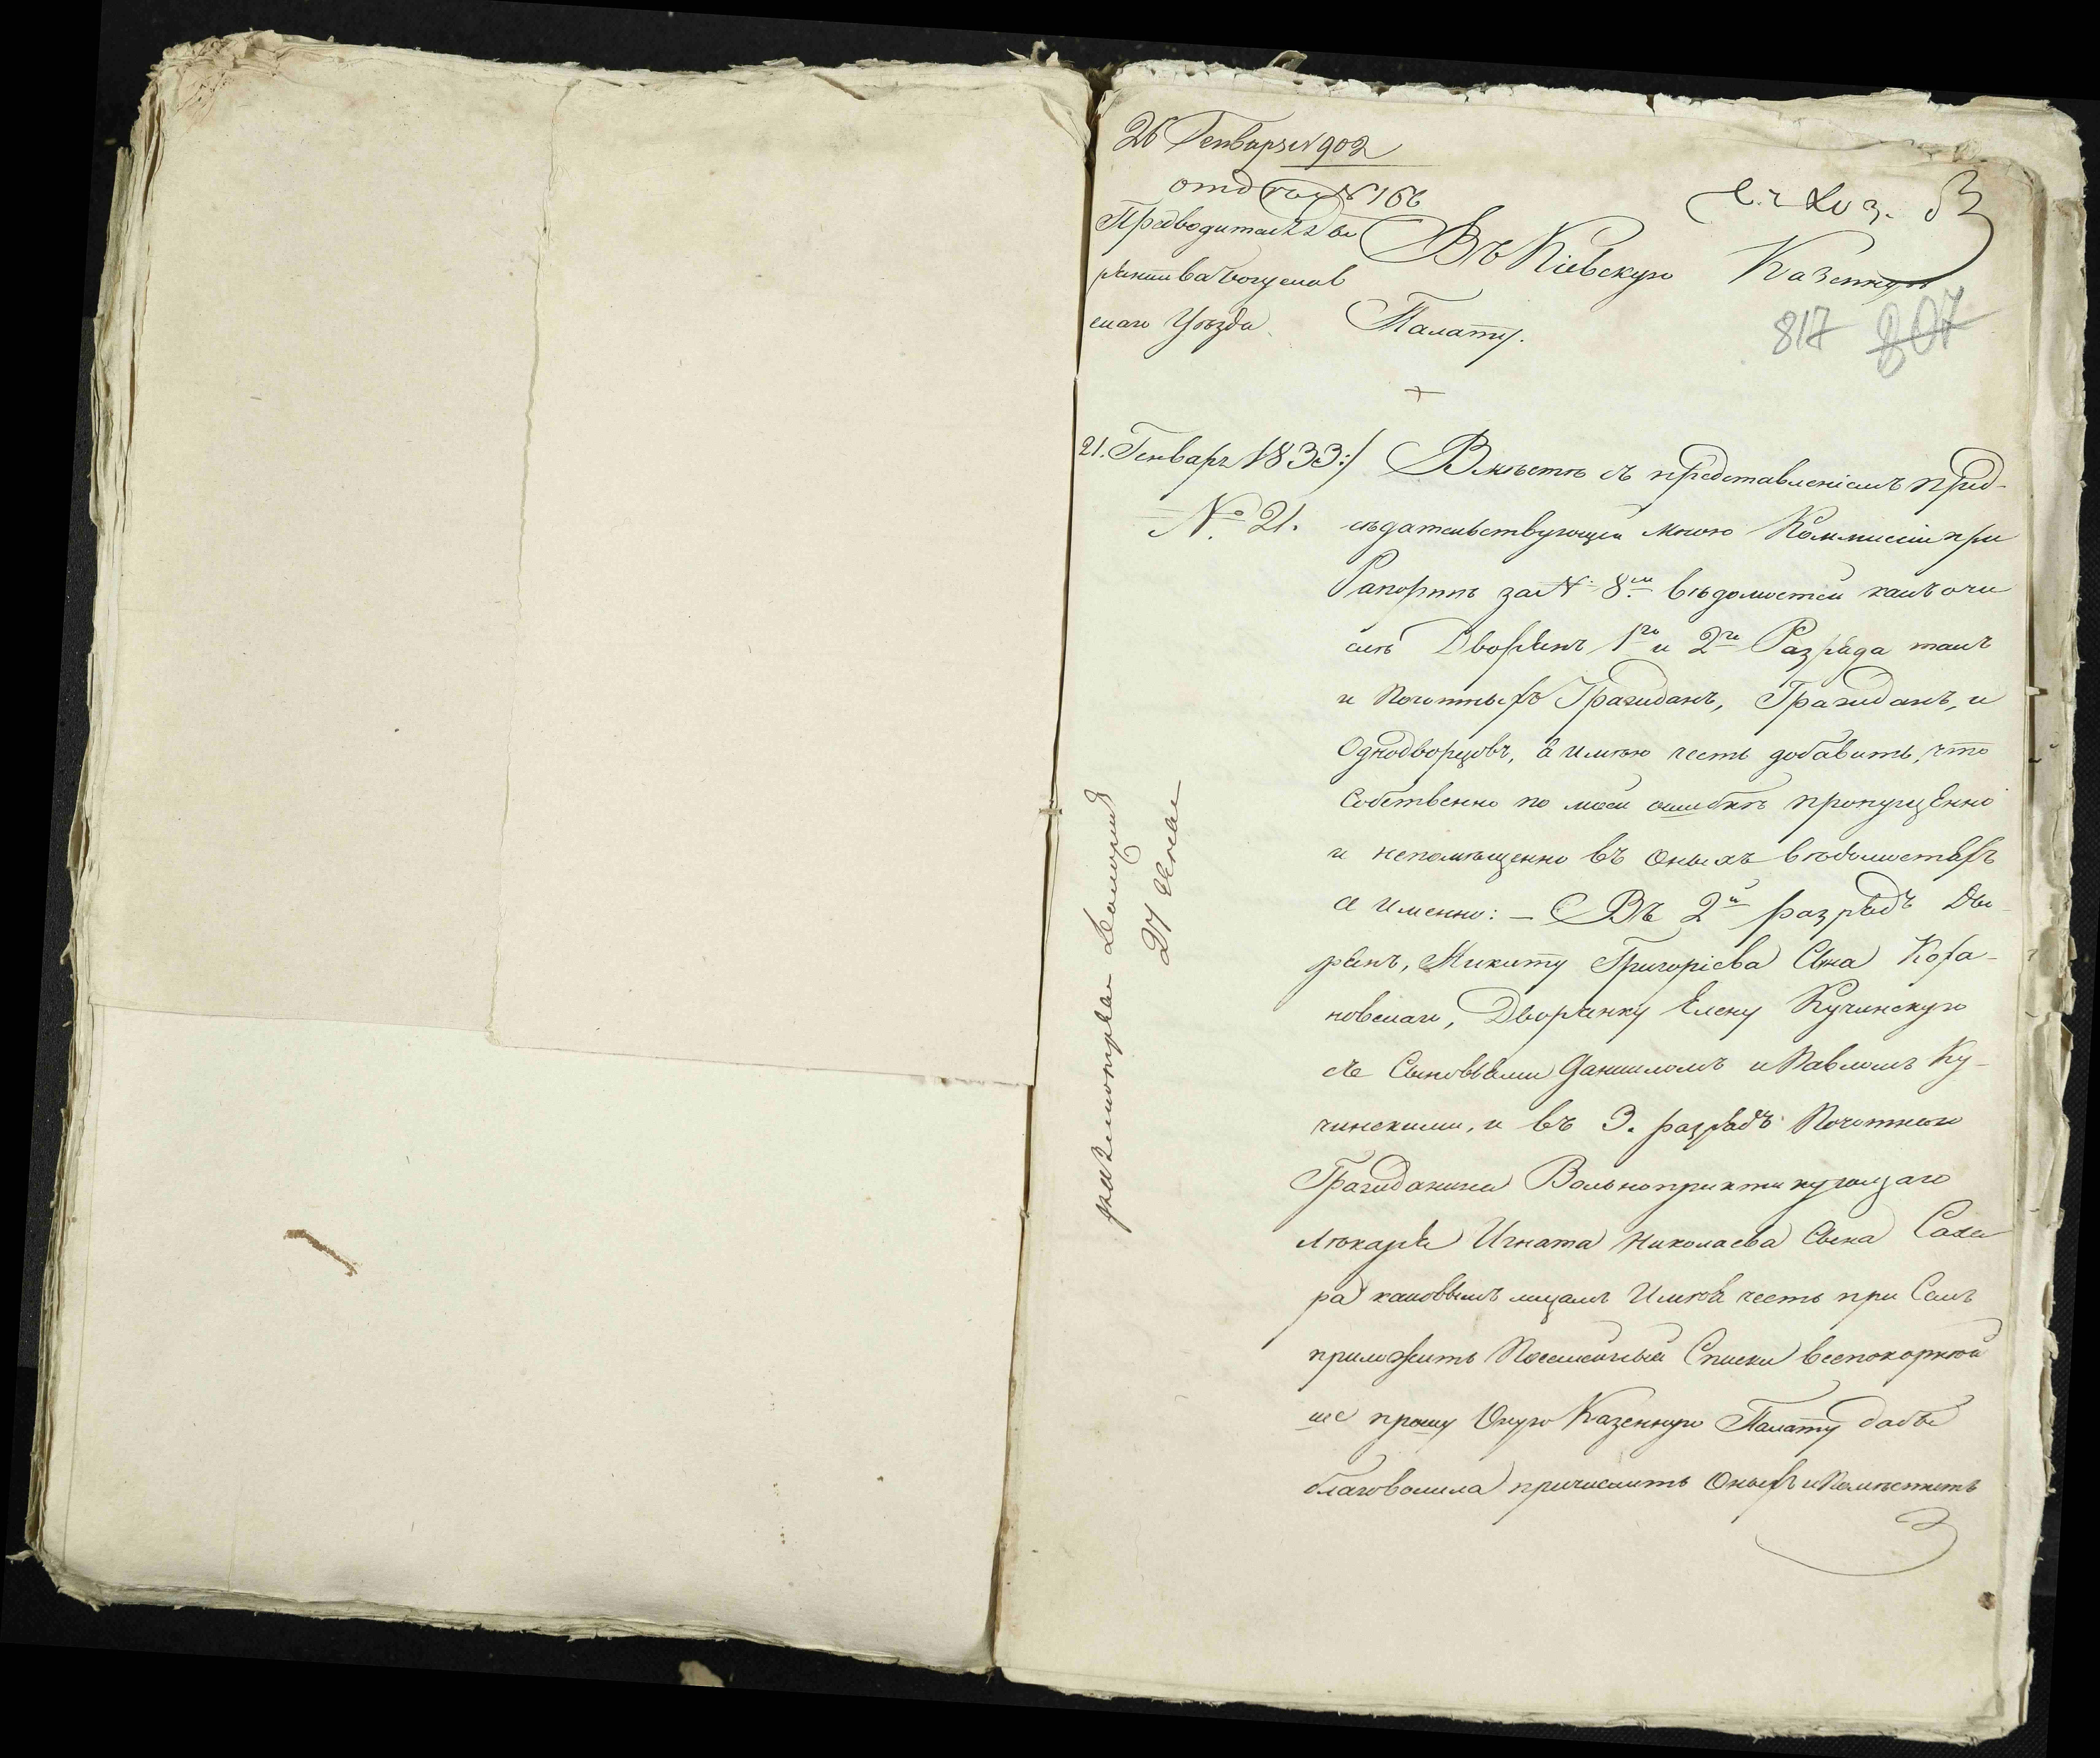 26 Генваря 902
№ 166
Предводитель Дво
рянства Богуслав
скаго Уѣзда
Въ Кіевскую Казенную
Палату.
817 807
21. Генваря 1833:/
№ 21.
Вмѣстѣ съ представленіемъ пред-
сѣдательствующей мною Коммисіи при
Рапортѣ за № 8м вѣдомостей какъ о чи
слѣ Дворянъ 1го и 2го Разряда такъ
и Почотныхъ Гражданъ, Гражданъ, и
Однодворцовъ, я имѣю честь добавить, что
собственно по моей ошибкѣ пропущенно
и непомѣщенно въ оныхъ вѣдомостяхъ
а именно: – Въ 2й разрядъ Дво-
рянъ, Микиту Григоріева Сына Коха-
новскаго, Дворянку Елену Кучинскую
съ Сыновьями Даниломъ и Павломъ Ку-
чинскими, и въ 3. разрядъ Почотнаго
Гражданина Вольнопрактикующаго
Лѣкаря Игната Николаева Сына
ра каковымъ лицамъ Имѣя честь при Семъ
приложить Посемейныя Списки всепокорнѣй
ше прошу Оную Казенную Палату дабы
благоволила причислить Оныхъ и Помѣстить
27 Генваря